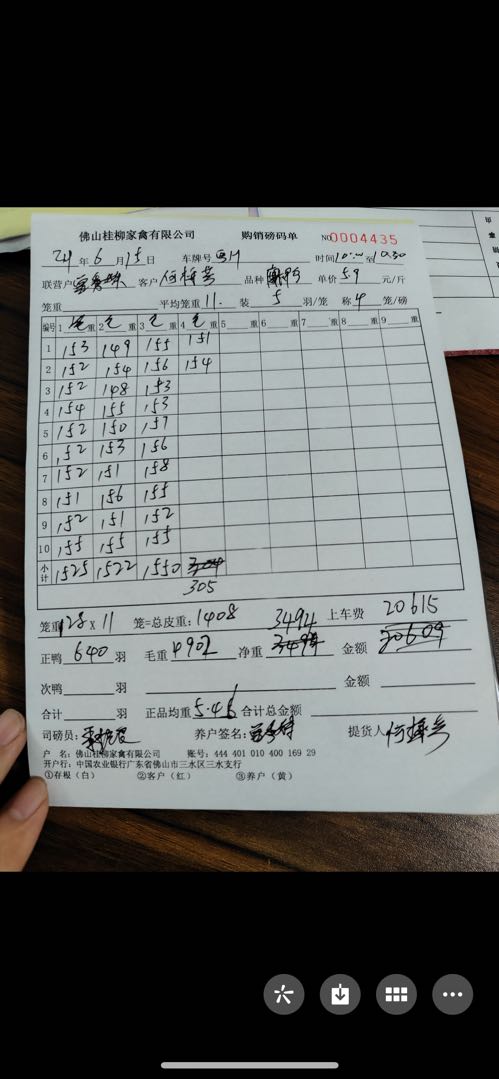 佛山桂柳家禽有限公司 购销磅码单 NO 0004435
24年6月15日 车牌号 时间10:00至10:30
联营户 客户何梅芳 品种 单价5.9元/斤
笼重 平均笼重11. 装5羽/笼 称4笼/磅
编号 1毛重 2毛重 3毛重 4毛重 5 重 6 重 7 重 8 重 9 重
1 153 149 155 151
2 152 154 156 154
3 152 148 153
4 154 155 153
5 152 150 157
6 152 153 156
7 152 151 158
8 151 156 155
9 152 151 152
10 155 155 155
小计 1525 1522 1550 3204
305
笼重128×11 笼=总皮重:1408 3494 上车费 20615
正鸭640羽 毛重4902 净重3494 金额20609
次鸭 羽 金额
合计 羽 正品均重5.46 合计总金额
司磅员: 养户签名: 提货人何梅芳
户 名:佛山桂柳家禽有限公司 账号:444 401 010 400 169 29
开户行:中国农业银行广东省佛山市三水区三水支行
①存根(白) ②客户(红) ③养户(黄)